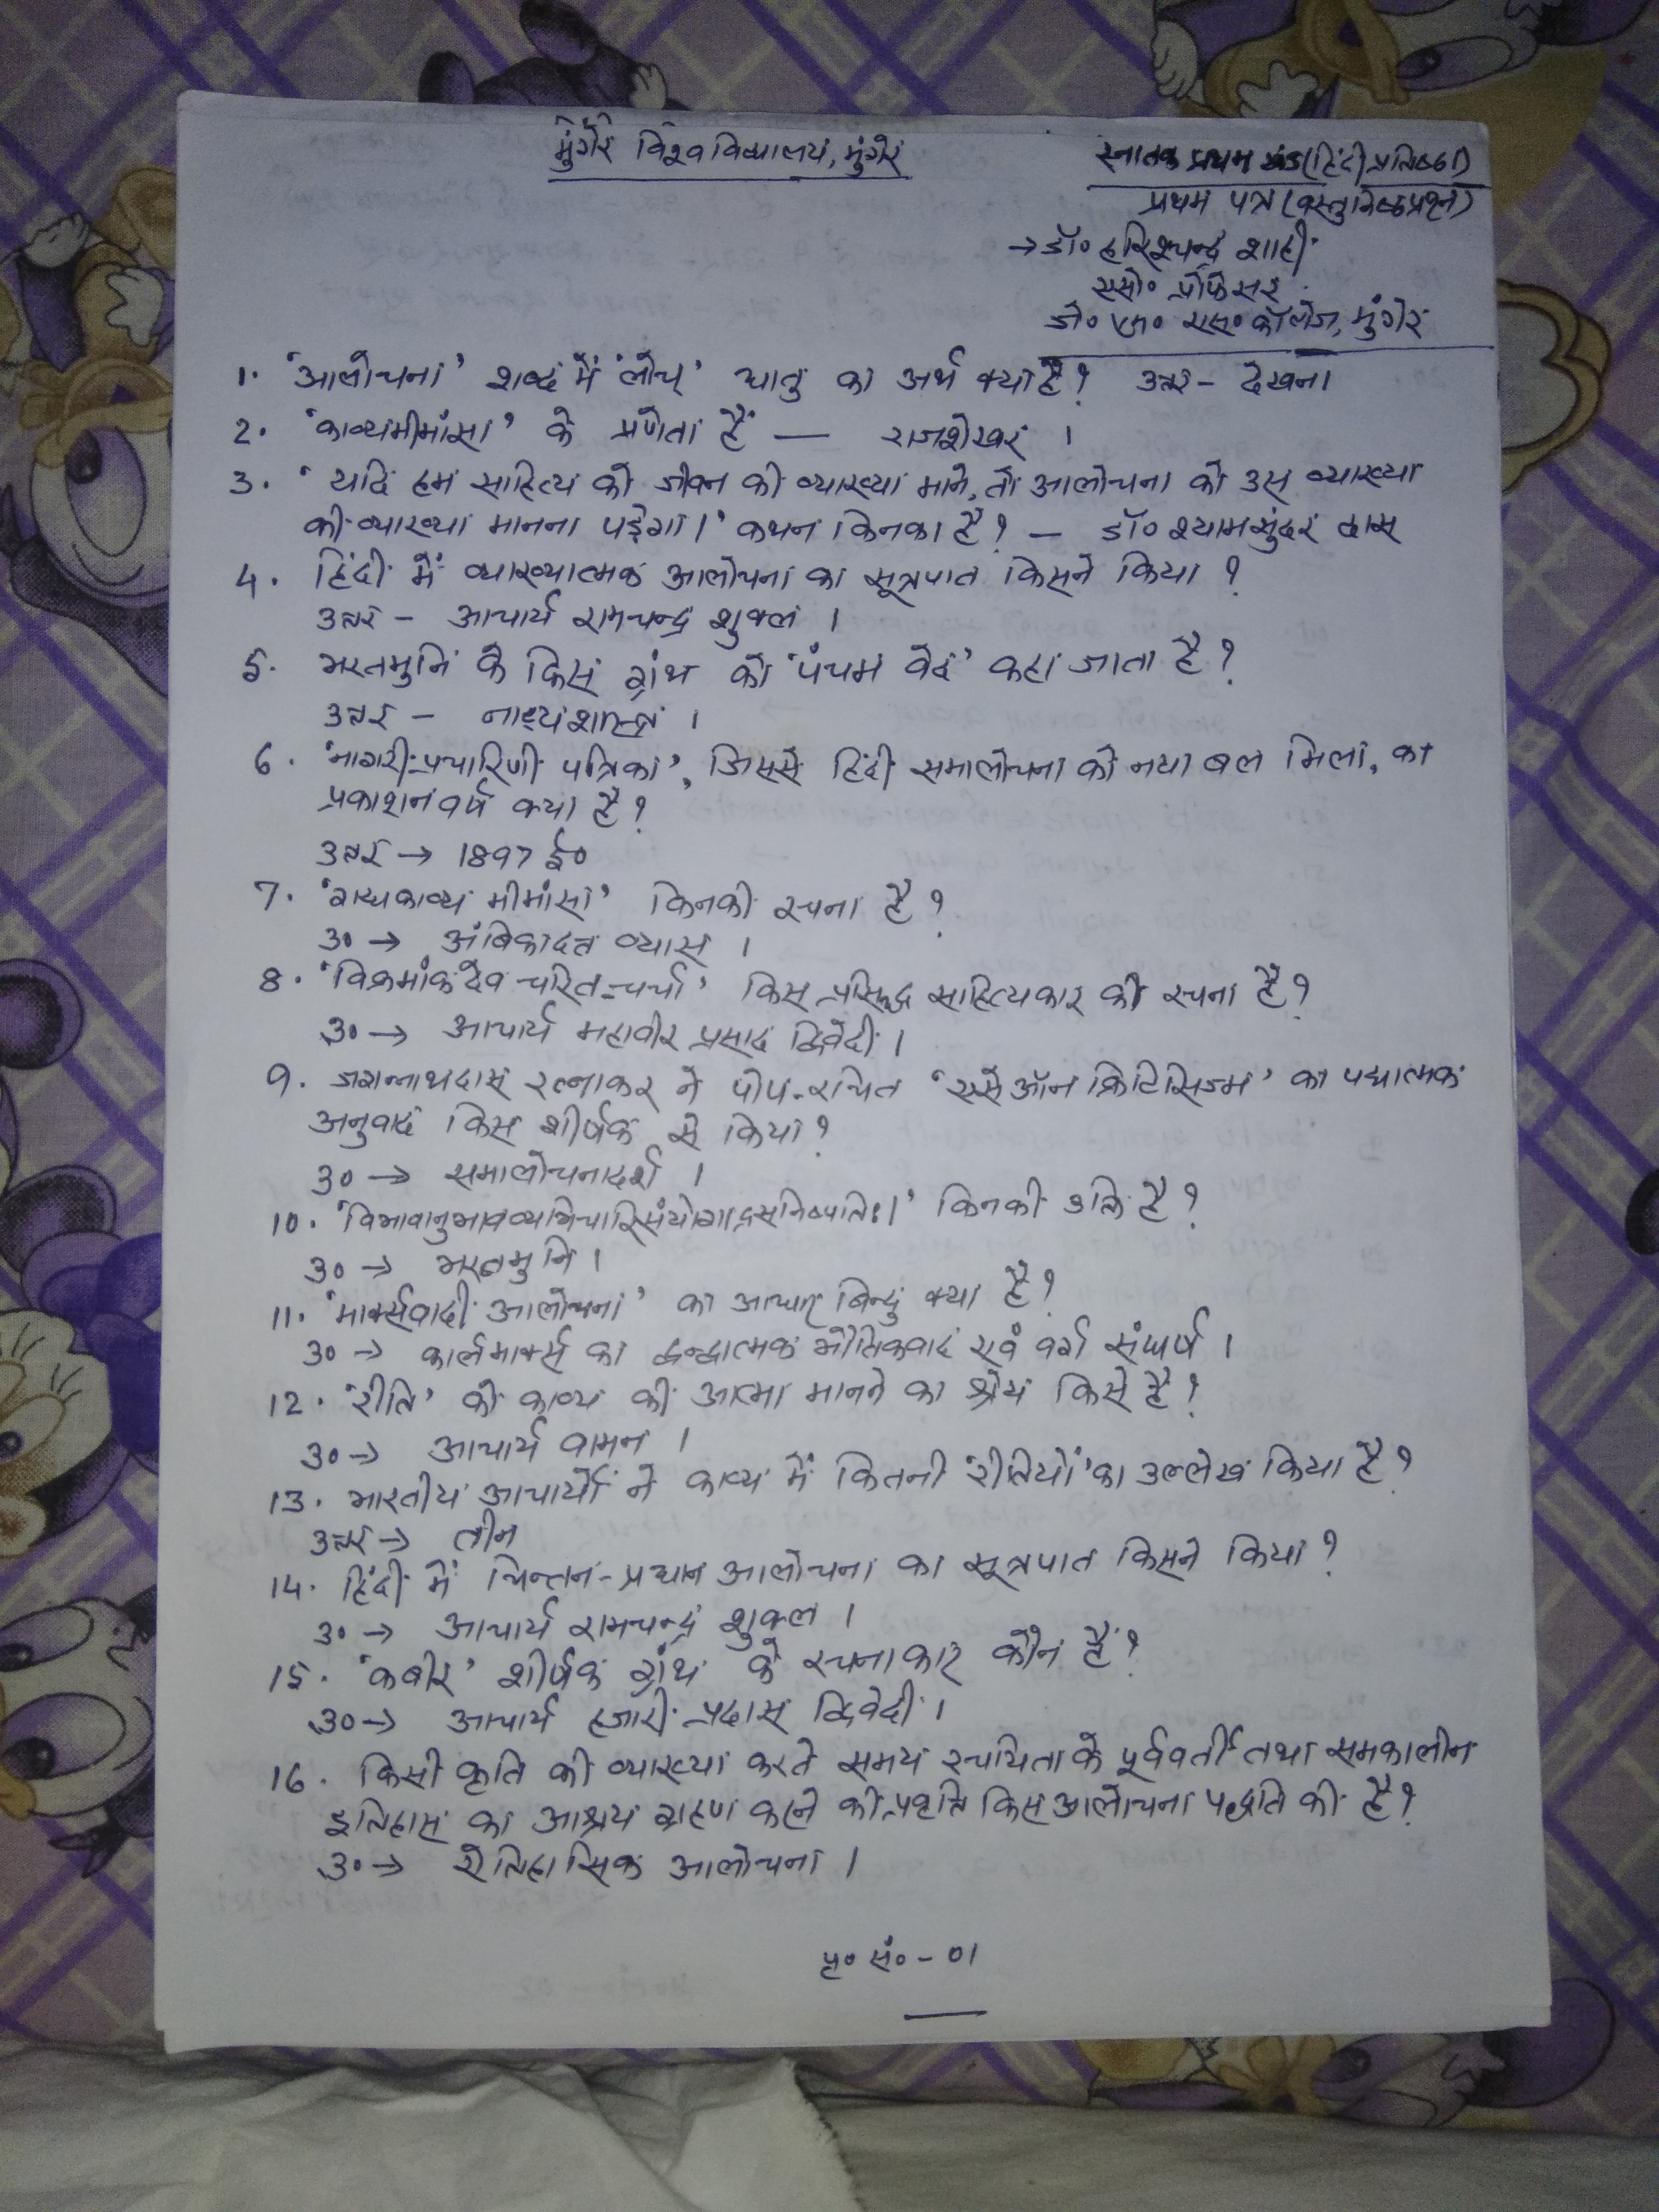 मुंगेर विश्वविद्यालय, मुंगेर
स्नातक प्रथम खंड (हिंदी प्रतिष्ठा)
प्रथम पत्र (वस्तुनिष्ठ प्रश्न)
→ डॉ० हरिश्चन्द्र शाही
एसो० प्रोफेसर
जे० एम० एस० कॉलेज, मुंगेर
1. 'आलोचना' शब्द में 'लोच्' धातु का अर्थ क्या है? उत्तर - देखना
2. 'काव्यमीमांसा' के प्रणेता हैं — राजशेखर ।
3. ' यदि हम साहित्य को जीवन की व्याख्या माने, तो आलोचना को उस व्याख्या
की व्याख्या मानना पड़ेगा।' कथन किनका है? — डॉ० श्यामसुंदर दास
4. हिंदी में व्याख्यात्मक आलोचना का सूत्रपात किसने किया ?
उत्तर - आचार्य रामचन्द्र शुक्ल ।
5. भरतमुनि के किस ग्रंथ को 'पंचम वेद' कहा जाता है ?
उत्तर - नाट्यशास्त्र ।
6. 'नागरी-प्रचारिणी पत्रिका', जिससे हिंदी समालोचना को नया बल मिला, का
प्रकाशन वर्ष क्या है ?
उत्तर → 1897 ई०
7. 'गद्यकाव्य मीमांसा' किनकी रचना है ?
उ० → अंबिकादत्त व्यास ।
8. 'विक्रमांकदेव चरित-चर्चा' किस प्रसिद्ध साहित्यकार की रचना है ?
उ० → आचार्य महावीर प्रसाद द्विवेदी ।
9. जगन्नाथदास रत्नाकर ने पोप-रचित 'एसे ऑन क्रिटिसिज्म' का पद्यात्मक
अनुवाद किस शीर्षक से किया ?
उ० → समालोचनादर्श ।
10. 'विभावानुभावव्यभिचारिसंयोगाद्रसनिष्पतिः।' किनकी उक्ति है ?
उ० → भरतमुनि ।
11. 'मार्क्सवादी आलोचना' का आधार बिन्दु क्या है ?
उ० → कार्लमार्क्स का द्वन्द्वात्मक भौतिकवाद एवं वर्ग संघर्ष ।
12. 'रीति' को काव्य की आत्मा मानने का श्रेय किसे है ?
उ० → आचार्य वामन ।
13. भारतीय आचार्यों ने काव्य में कितनी 'रीतियों' का उल्लेख किया है ?
उत्तर → तीन
14. हिंदी में चिन्तन-प्रधान आलोचना का सूत्रपात किसने किया ?
उ० → आचार्य रामचन्द्र शुक्ल ।
15. 'कबीर' शीर्षक ग्रंथ के रचनाकार कौन हैं ?
उ० → आचार्य हजारी प्रदास द्विवेदी ।
16. किसी कृति की व्याख्या करते समय रचयिता के पूर्ववर्ती तथा समकालीन
इतिहास का आश्रय ग्रहण करने की प्रवृत्ति किस आलोचना पद्धति की है ?
उ० → ऐतिहासिक आलोचना ।
पृ० सं० - 01